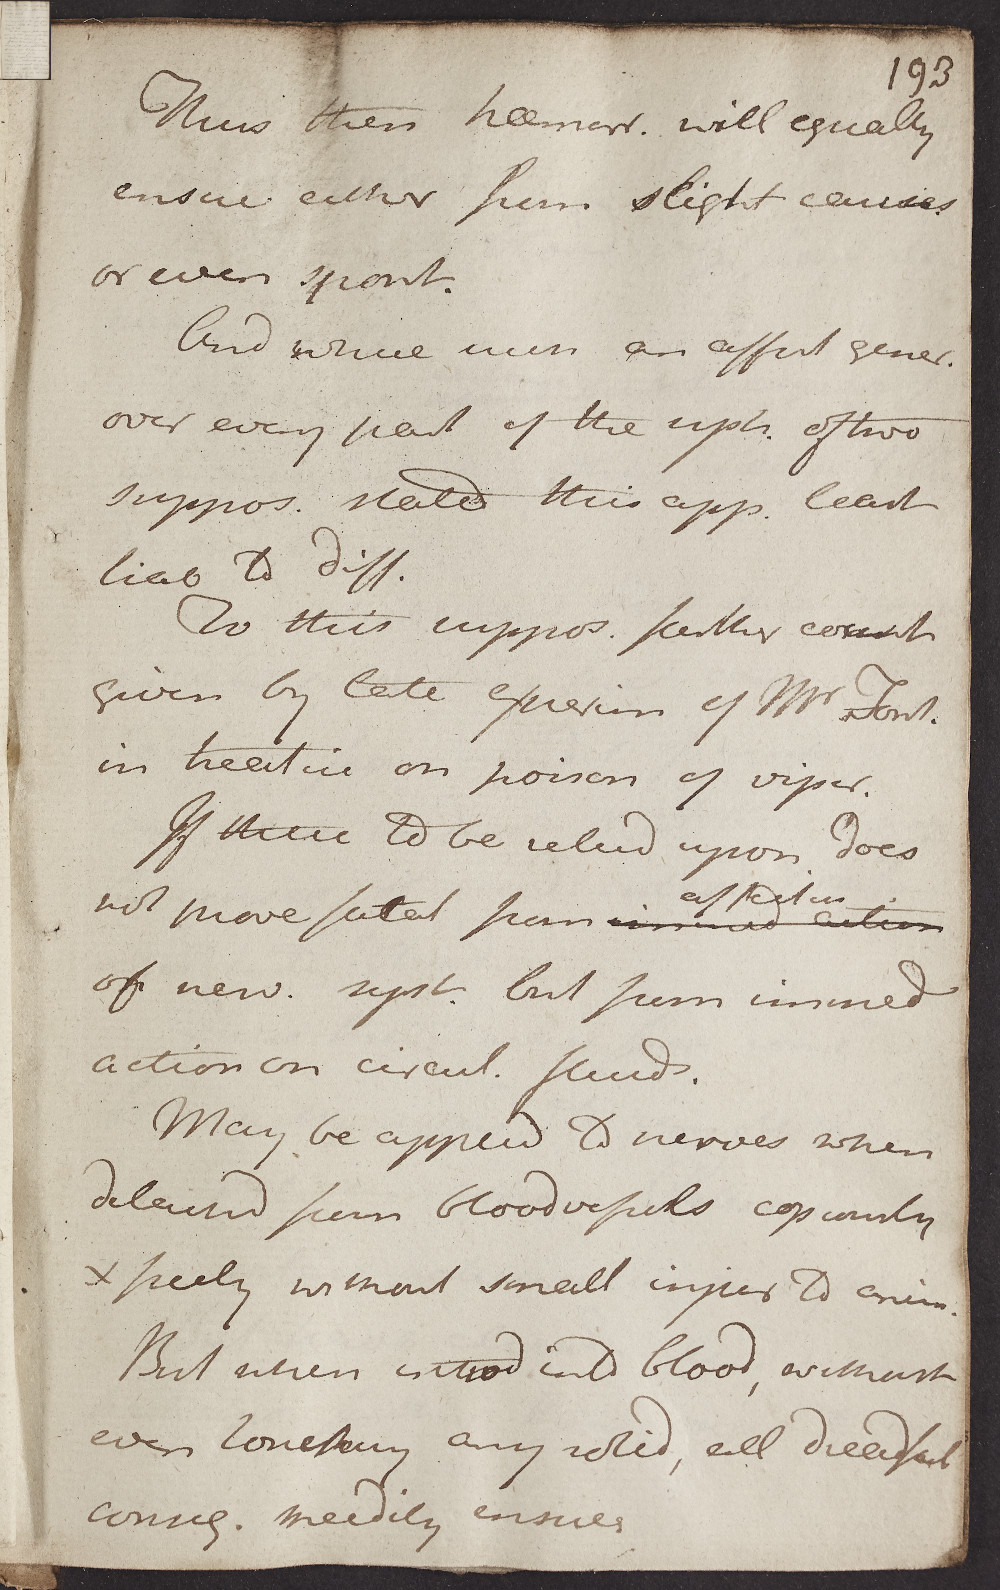 193
Thus then hæmorr. will equally
ensue either from slight causes
or even spont.
And where even an affect gener.
over every part of the syst. of two
suppos. stated this app. least
liab to diff.
To this suppos. farther
given by late experim of Mr Font.
in treatise on poison of viper.
If these to be relied upon does
not prove fatal from immed action
affection
of nerv. syst. but from immed
action on circul. fluids.
May be applied to nerves when
detached from bloodvessels copiously
& freely without small injur to anim.
But when introd into blood, without
ever touching any solid, all dreadful
conseq. speedily ensues